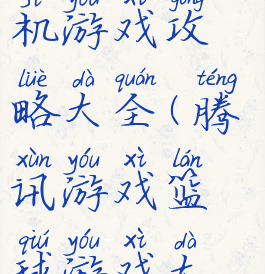 jī yóu xì gōng
机游戏攻
lüè dà quán téng
略大全(腾
xùn yóu xì lán
讯游戏篮
qiú yóu xì dà
球游戏大